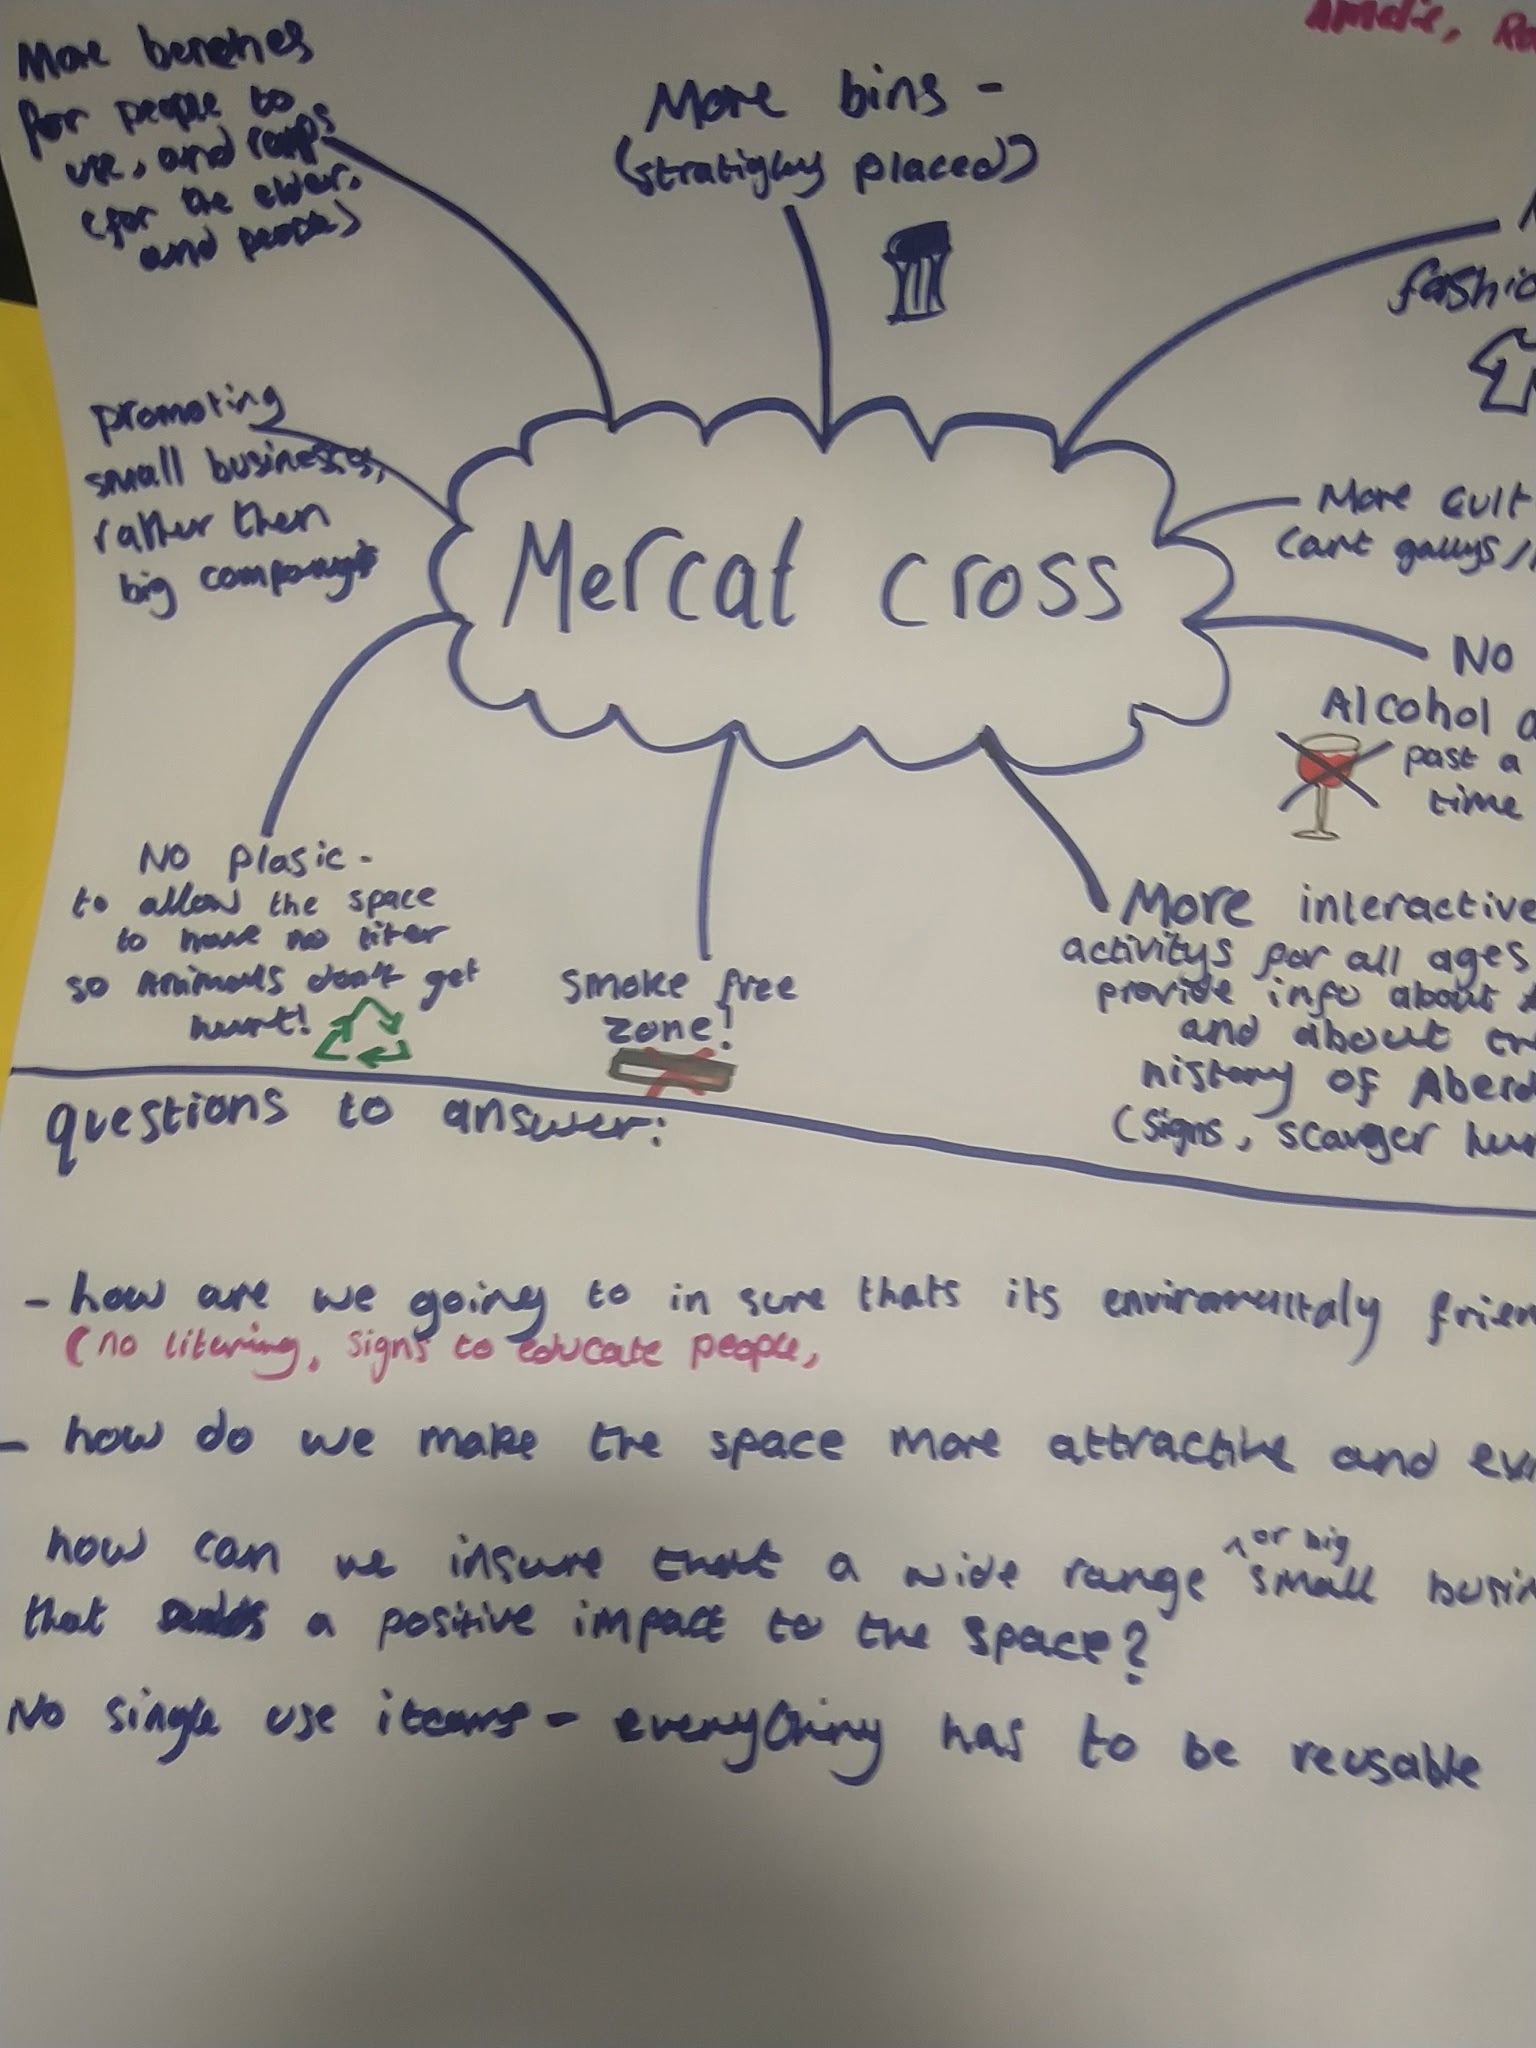 Amelie,
More benches
for people to
use, and ramps
(for the elder,
and people)
More bins -
(stratigkuy placed)
fashio
promoting
small businesses,
rather then
big companys
Mercat cross
More cult
(art gallys/
No
Alcohol a
past a
time
No plasic -
to allow the space
to have no liter
so Animals don't get
hurt!
smoke free
zone!
More interactive
activitys for all ages
provide info about
and about the
history of Aberd
(signs, scavger hun
questions to answer:
- how are we going to in sure thats its enviromentaly frien
(no litering, signs to educate people,
- how do we make the space more attractive and exi
or big
how can we insure that a wide range ^ small busin
that a positive impact to the space?
No single use items - everything has to be reusable